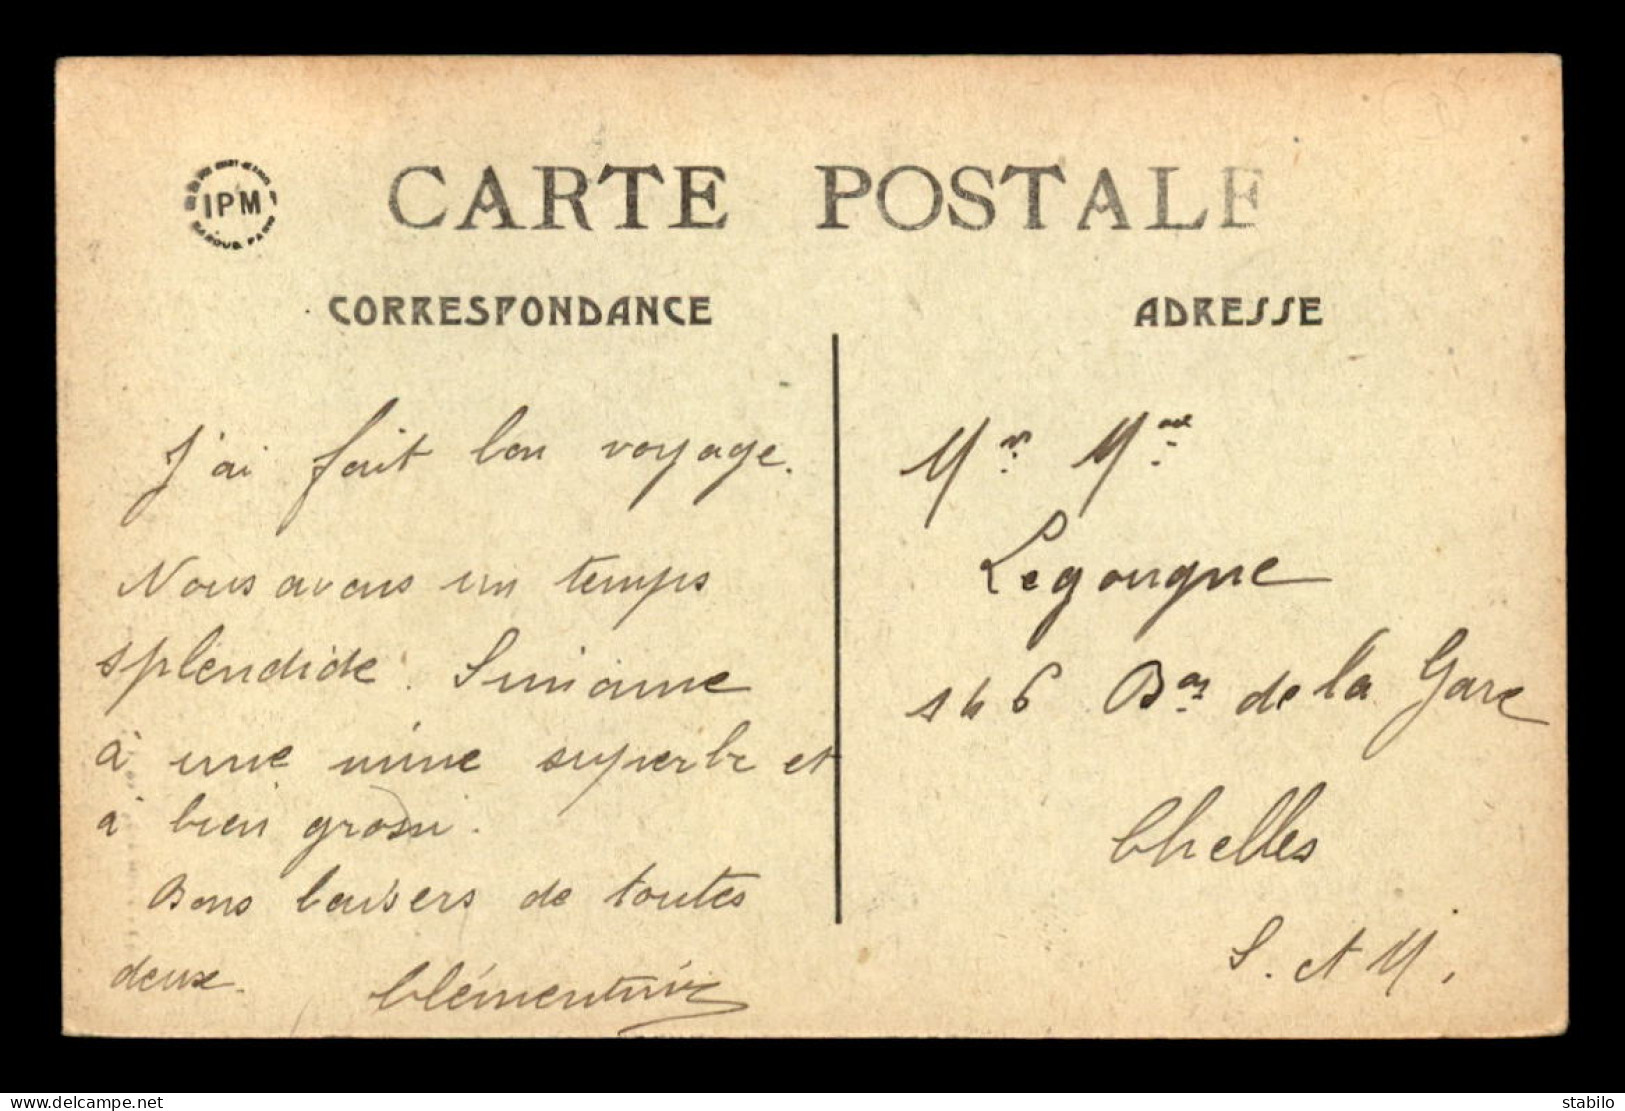 CARTE POSTALE
IPM
CORRESPONDANCE
ADRESSE
J'ai fait bon voyage.
Nous avons un temps
splendide. Simiane
à une mine superbe et
à bien grossi.
Bons baisers de toutes
deux. Clémentine
Mr Mme
Legougne
146 Bas de la Gare
Chelles
S. et M.
delcampe.net
stabilo